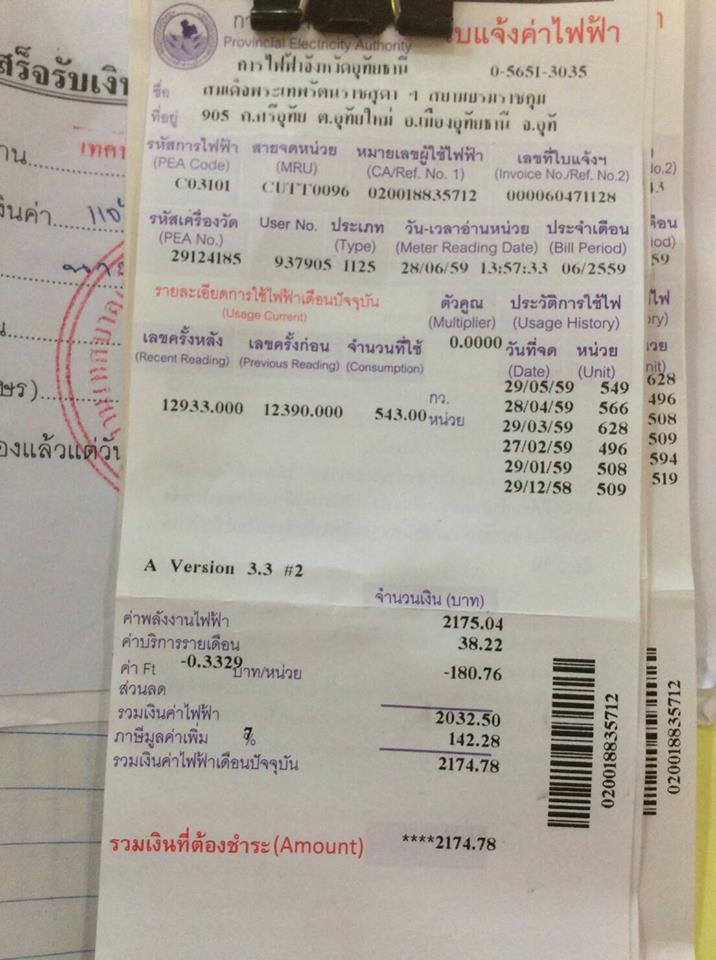 ใบแจ้งค่าไฟฟ้า
Provincial Electricity Authority
การไฟฟ้าจังหวัดอุทัยธานี 0-5651-3035
ชื่อ สมเด็จพระเทพรัตนราชสุดา ฯ สยามบรมราชกุม
ที่อยู่ 905 ถ.ศรีอุทัย ต.อุทัยใหม่ อ.เมืองอุทัยธานี จ.อุทั
รหัสการไฟฟ้า สายจดหน่วย หมายเลขผู้ใช้ไฟฟ้า เลขที่ใบแจ้งฯ
(PEA Code) (MRU) (CA/Ref. No. 1) (Invoice No./Ref. No.2)
C03101 CUTT0096 020018835712 000060471128
รหัสเครื่องวัด User No. ประเภท วัน-เวลาอ่านหน่วย ประจำเดือน
(PEA No.) (Type) (Meter Reading Date) (Bill Period)
29124185 937905 1125 28/06/59 13:57:33 06/2559
รายละเอียดการใช้ไฟฟ้าเดือนปัจจุบัน ตัวคูณ ประวัติการใช้ไฟ
(Usage Current) (Multiplier) (Usage History)
เลขครั้งหลัง เลขครั้งก่อน จำนวนที่ใช้ 0.0000 วันที่จด หน่วย
(Recent Reading) (Previous Reading) (Consumption) (Date) (Unit)
29/05/59 549
12933.000 12390.000 543.00 กว. หน่วย 28/04/59 566
29/03/59 628
27/02/59 496
29/01/59 508
29/12/58 509
A Version 3.3 #2
จำนวนเงิน (บาท)
ค่าพลังงานไฟฟ้า 2175.04
ค่าบริการรายเดือน 38.22
ค่า Ft -0.3329 บาท/หน่วย -180.76
ส่วนลด
รวมเงินค่าไฟฟ้า 2032.50
ภาษีมูลค่าเพิ่ม 7% 142.28
รวมเงินค่าไฟฟ้าเดือนปัจจุบัน 2174.78
รวมเงินที่ต้องชำระ(Amount) ****2174.78
020018835712
628
496
508
509
594
519
020018835712